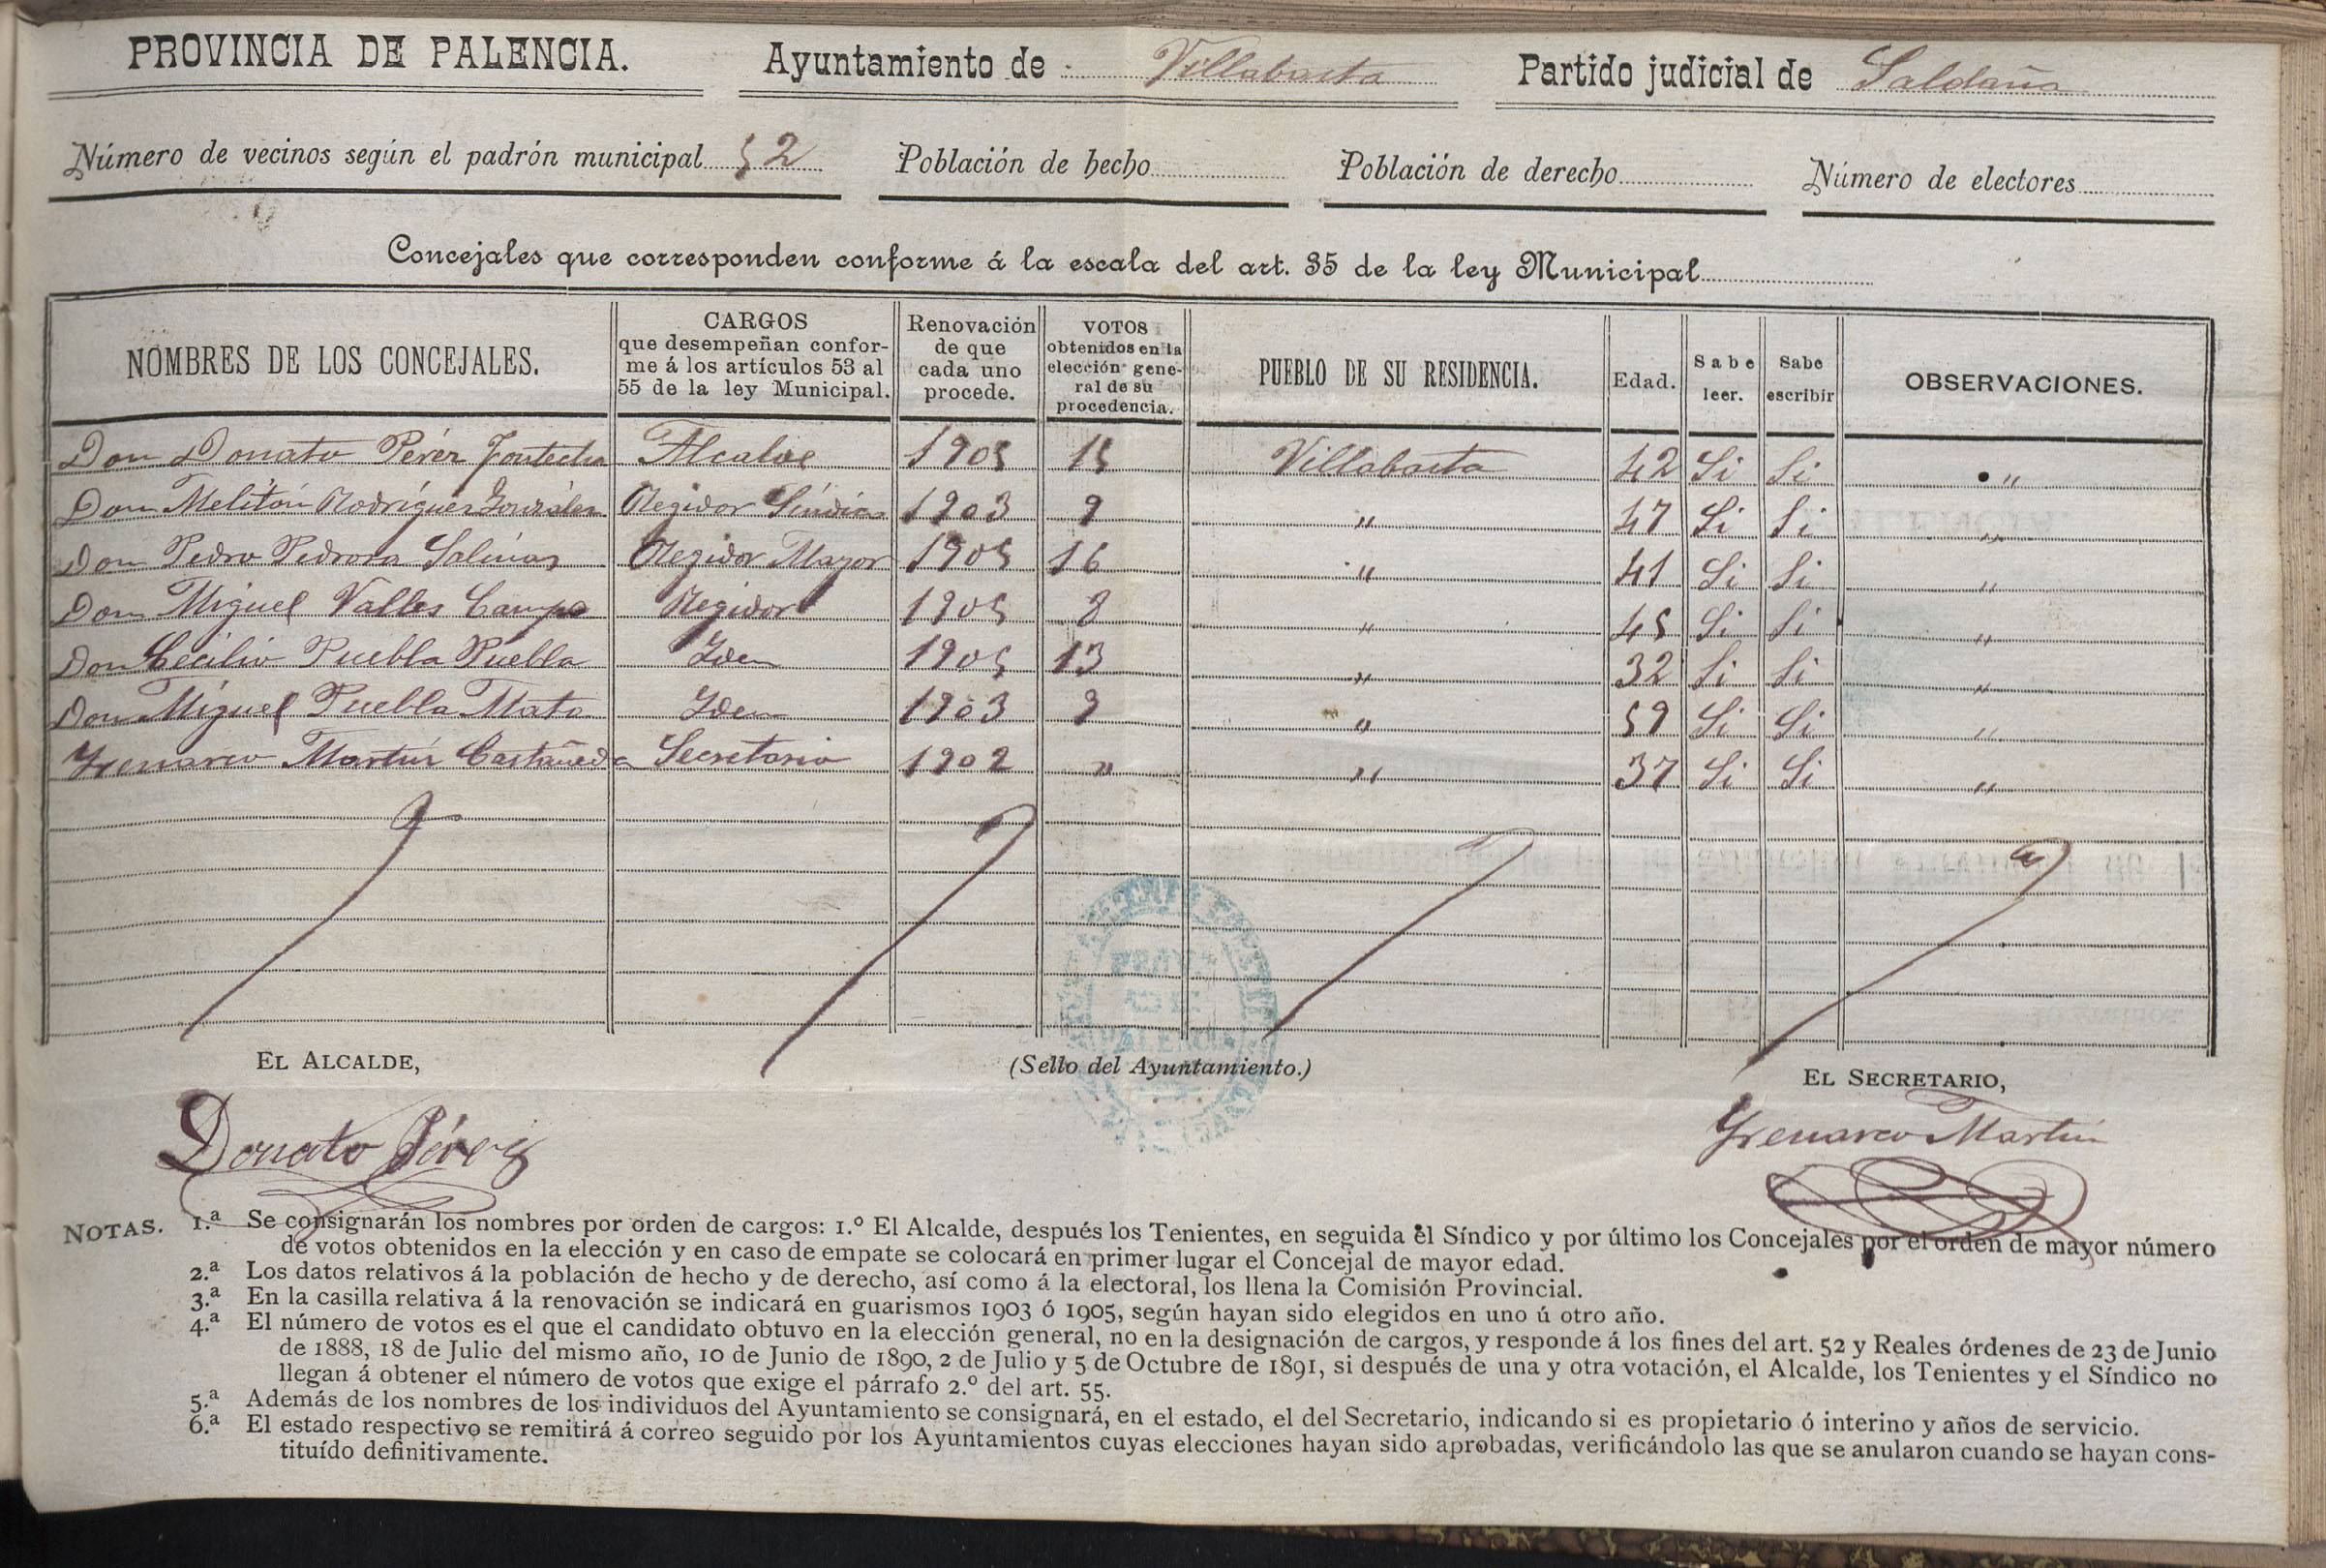 PROVINCIA DE PALENCIA. Ayuntamiento de Villabasta Partido judicial de Saldaña
Número de vecinos según el padrón municipal 52 Población de hecho Población de derecho Número de electores
Concejales que corresponden conforme á la escala del art. 35 de la ley Municipal
NOMBRES DE LOS CONCEJALES. CARGOS que desempeñan conforme á los artículos 53 al 55 de la ley Municipal. Renovación de que cada uno procede. VOTOS obtenidos en la elección general de su procedencia. PUEBLO DE SU RESIDENCIA. Edad. Sabe leer. Sabe escribir OBSERVACIONES.
Don Donato Pérez Fontecha Alcalde 1905 15 Villabasta 42 Si Si "
Don Melitón Rodríguez González Regidor Síndico 1903 9 " 47 Si Si "
Don Pedro Pedrosa Salinas Regidor Mayor 1905 16 " 41 Si Si "
Don Miguel Valles Campo Regidor 1905 " 45 Si Si "
Don Cecilio Puebla Puebla Idem 1905 13 " 32 Si Si "
Don Miguel Puebla Mata Idem 1903 9 " 59 Si Si "
Martín Castañeda Secretario 1902 " " 37 Si Si "
EL ALCALDE, (Sello del Ayuntamiento.) EL SECRETARIO,
Donato Pérez Martín
NOTAS. 1.ª Se consignarán los nombres por orden de cargos: 1.º El Alcalde, después los Tenientes, en seguida el Síndico y por último los Concejales por el orden de mayor número
de votos obtenidos en la elección y en caso de empate se colocará en primer lugar el Concejal de mayor edad.
2.ª Los datos relativos á la población de hecho y de derecho, así como á la electoral, los llena la Comisión Provincial.
3.ª En la casilla relativa á la renovación se indicará en guarismos 1903 ó 1905, según hayan sido elegidos en uno ú otro año.
4.ª El número de votos es el que el candidato obtuvo en la elección general, no en la designación de cargos, y responde á los fines del art. 52 y Reales órdenes de 23 de Junio
de 1888, 18 de Julio del mismo año, 10 de Junio de 1890, 2 de Julio y 5 de Octubre de 1891, si después de una y otra votación, el Alcalde, los Tenientes y el Síndico no
llegan á obtener el número de votos que exige el párrafo 2.º del art. 55.
5.ª Además de los nombres de los individuos del Ayuntamiento se consignará, en el estado, el del Secretario, indicando si es propietario ó interino y años de servicio.
6.ª El estado respectivo se remitirá á correo seguido por los Ayuntamientos cuyas elecciones hayan sido aprobadas, verificándolo las que se anularon cuando se hayan cons-
tituído definitivamente.